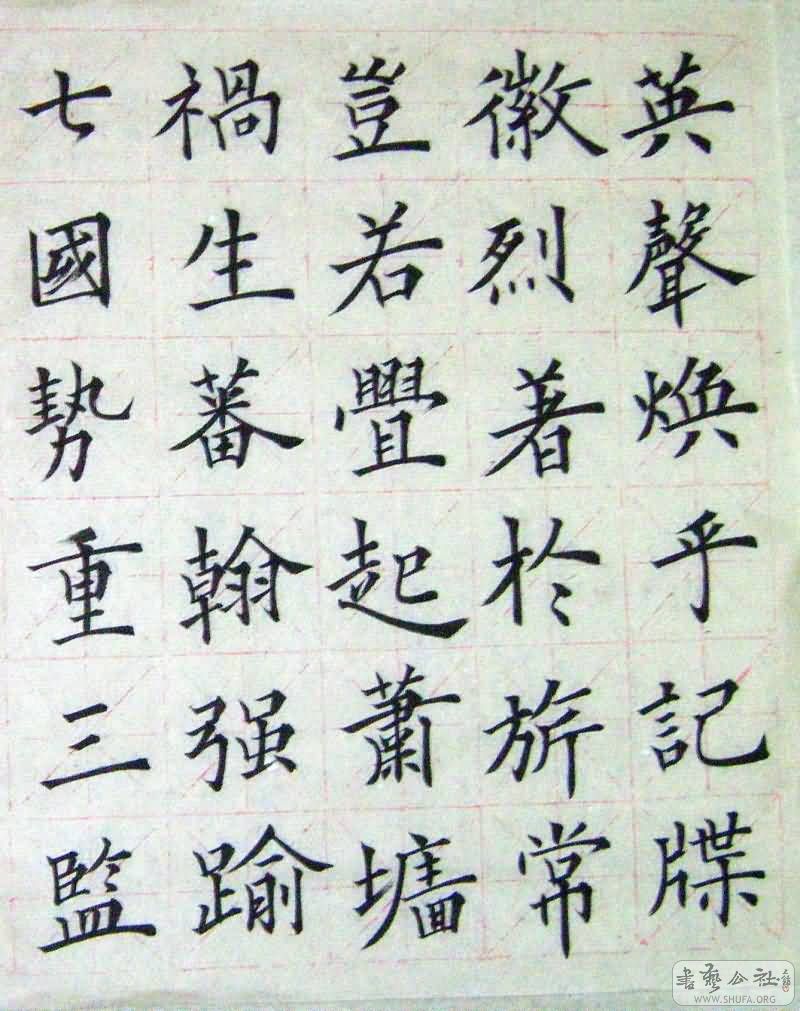 英聲煥乎記牒
徽烈著於旂常
豈若舋起蕭墻
禍生蕃翰强踰
七國勢重三監
書藝公社
WWW.SHUFA.ORG